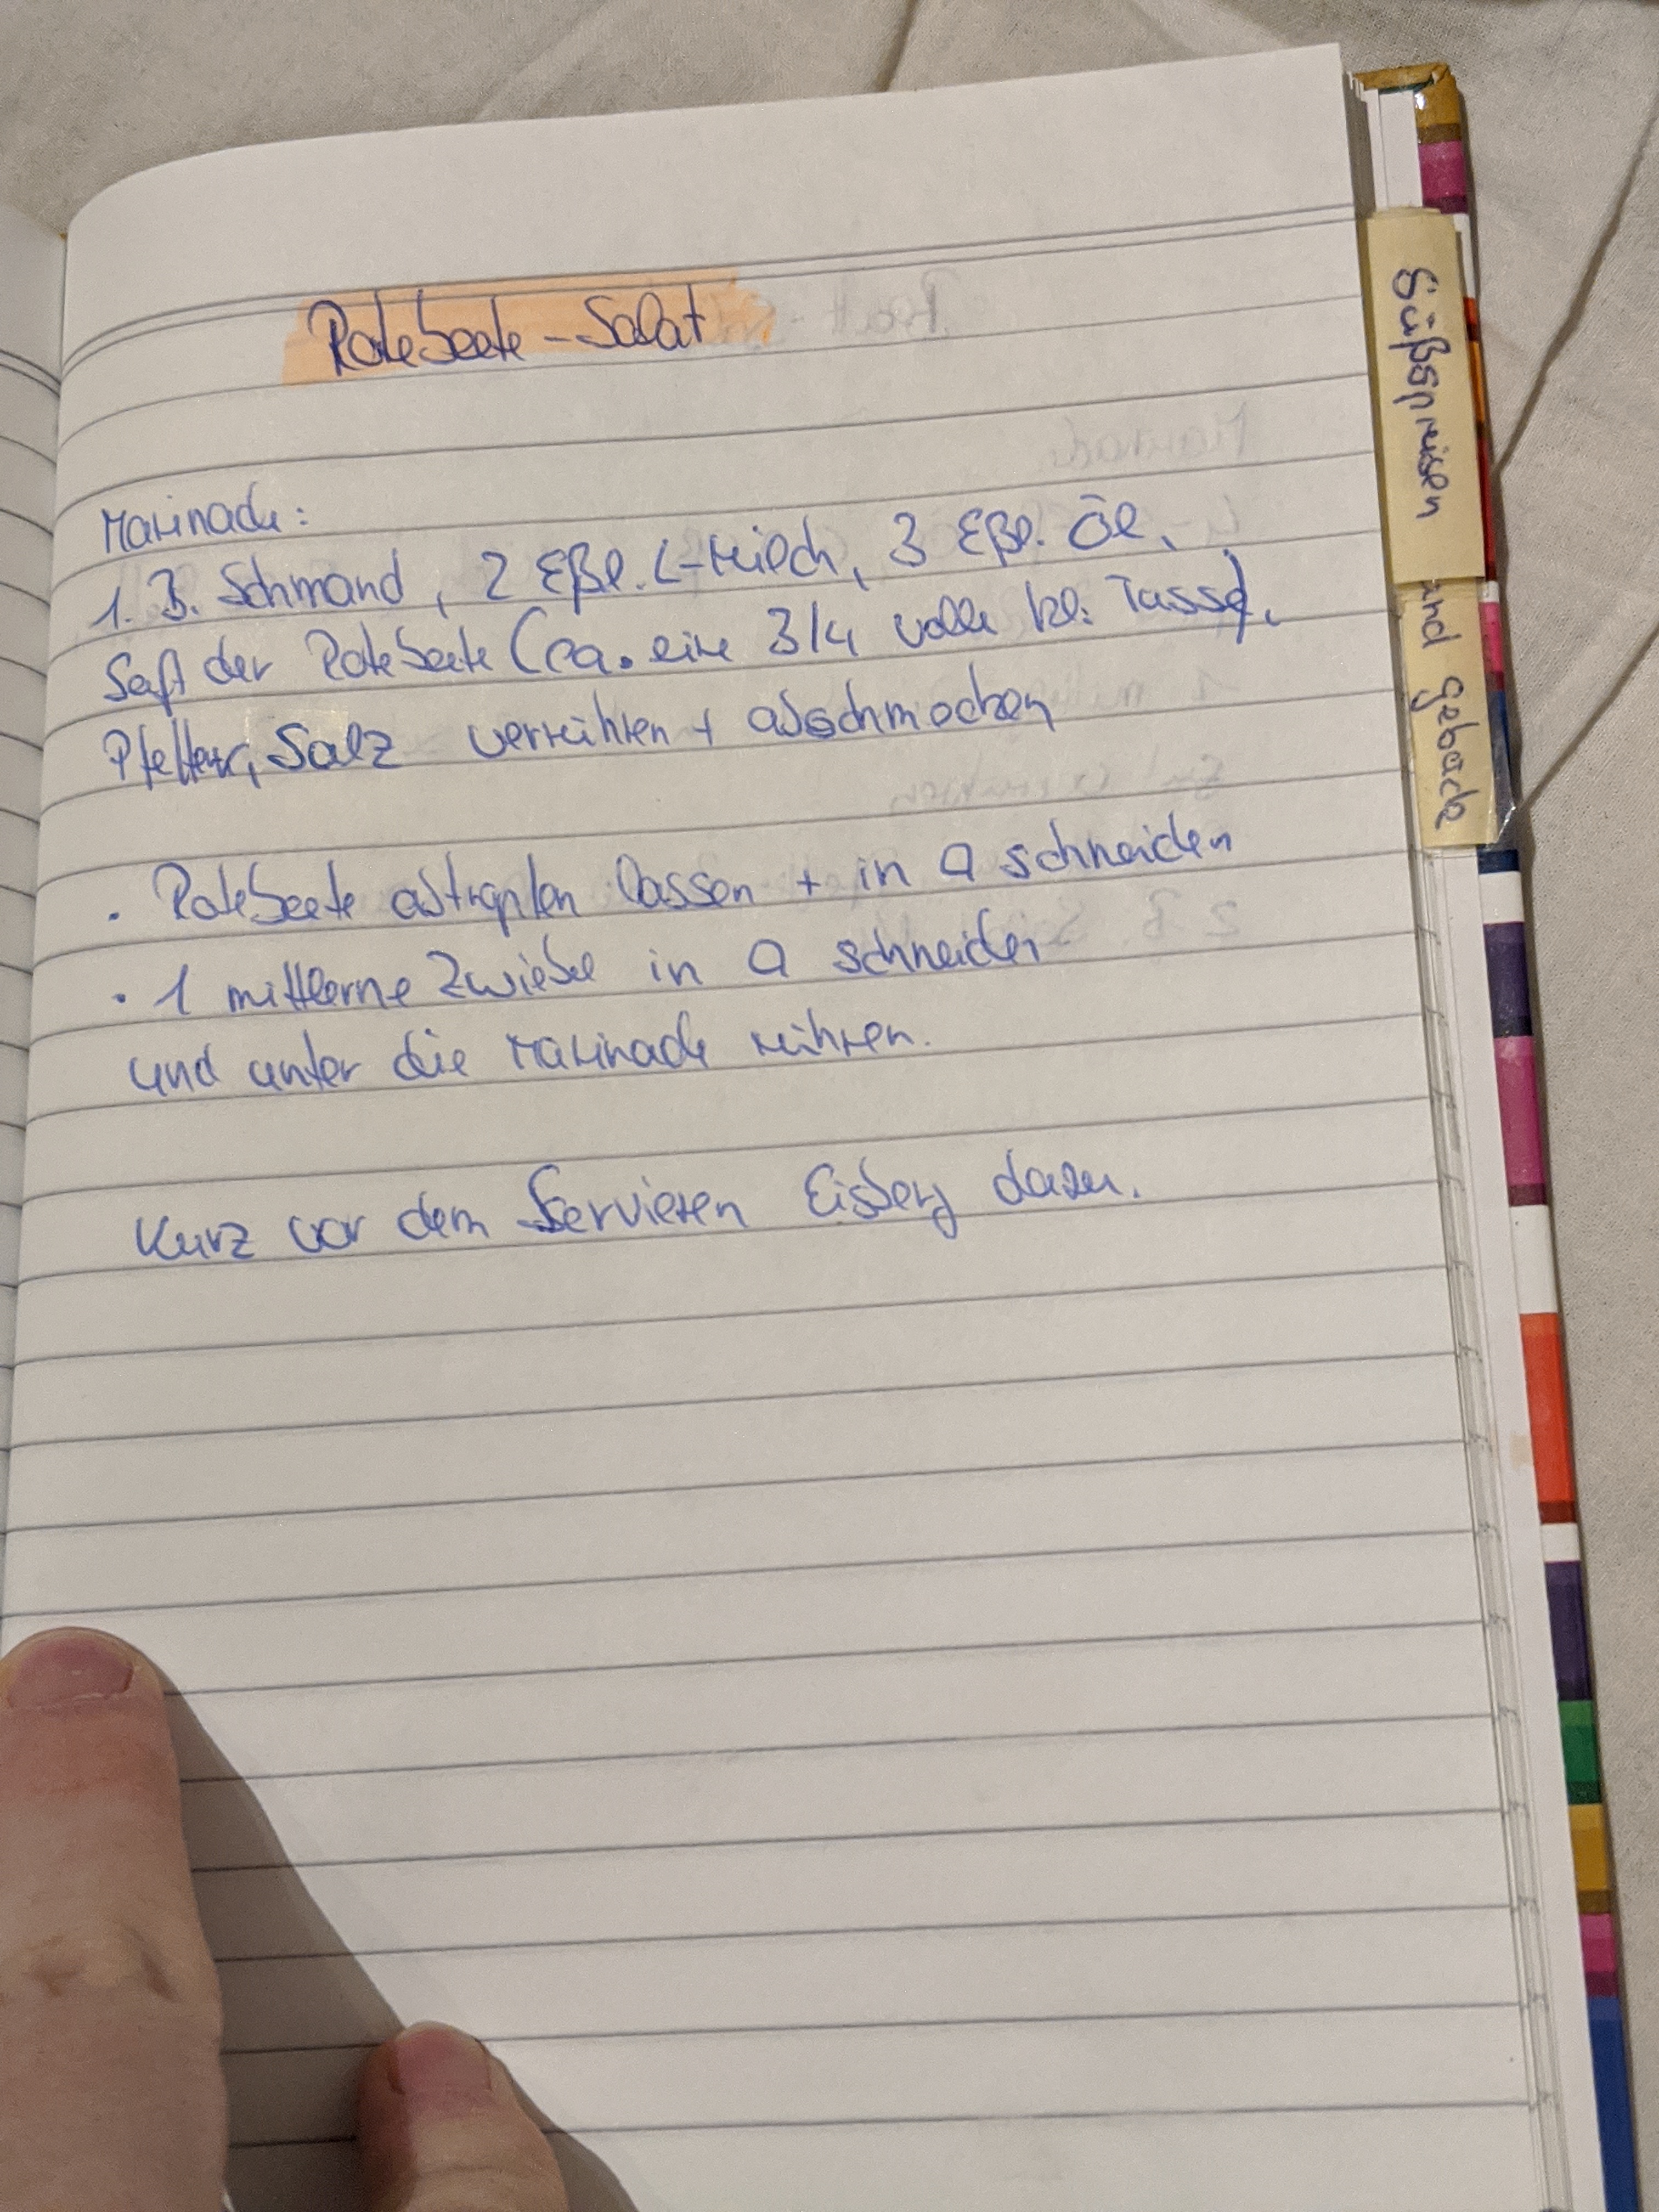 Rotebeete-Salat
Marinade:
1. B. Schmand, 2 Eßl. L-Milch, 3 Eßl. Öl,
Saft der Rotebeete (ca. eine 3/4 volle kl. Tasse),
Pfeffer, Salz verrühren + abschmecken
. Rotebeete abtropfen lassen + in □ schneiden
. 1 mittlerne Zwiebel in □ schneiden
und unter die Marinade rühren.
Kurz vor dem Servieren Eisberg dazu.
Süßspeisen
und gebäck